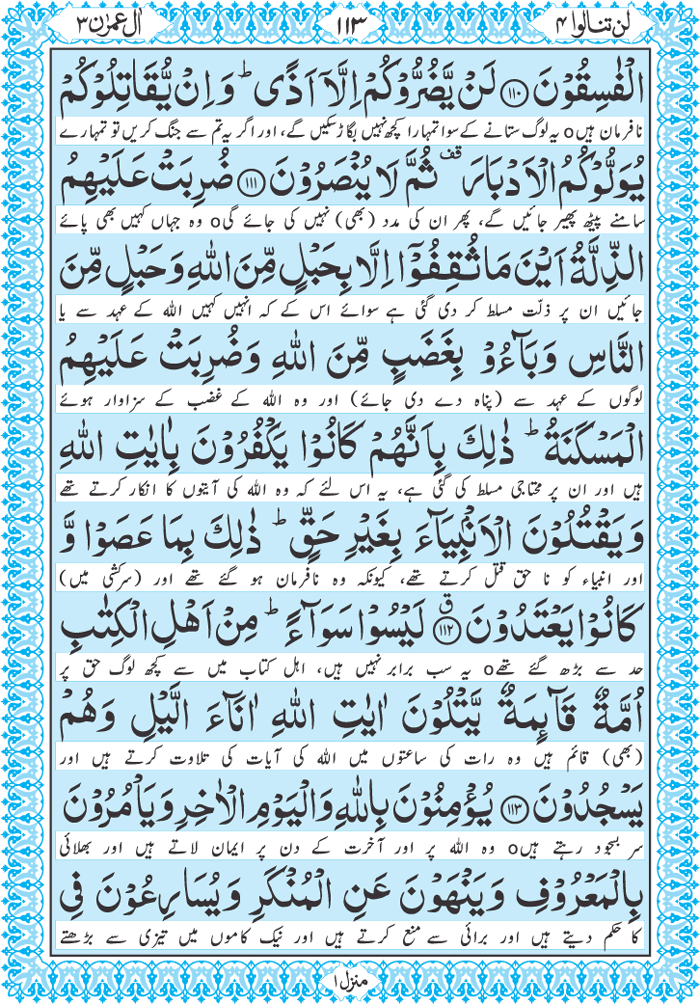 لن تنالوا ۴
۱۱۳
اٰل عمرٰن ۳
الْفٰسِقُوْنَ ﴿۱۱۰﴾ لَنْ يَّضُرُّوْكُمْ اِلَّاۤ اَذًى ؕ وَ اِنْ يُّقَاتِلُوْكُمْ
نافرمان ہیںo یہ لوگ ستانے کے سوا تمہارا کچھ نہیں بگاڑ سکیں گے، اور اگر یہ تم سے جنگ کریں تو تمہارے
يُوَلُّوْكُمُ الْاَدْبَارَ ۟ ثُمَّ لَا يُنْصَرُوْنَ ﴿۱۱۱﴾ ضُرِبَتْ عَلَيْهِمُ
سامنے پیٹھ پھیر جائیں گے، پھر ان کی مدد (بھی) نہیں کی جائے گیo وہ جہاں کہیں بھی پائے
الذِّلَّةُ اَيْنَ مَا ثُقِفُوْۤا اِلَّا بِحَبْلٍ مِّنَ اللّٰهِ وَ حَبْلٍ مِّنَ
جائیں ان پر ذلّت مسلط کر دی گئی ہے سوائے اس کے کہ انہیں کہیں اللہ کے عہد سے یا
النَّاسِ وَ بَآءُوْ بِغَضَبٍ مِّنَ اللّٰهِ وَ ضُرِبَتْ عَلَيْهِمُ
لوگوں کے عہد سے (پناہ دے دی جائے) اور وہ اللہ کے غضب کے سزاوار ہوئے
الْمَسْكَنَةُ ؕ ذٰلِكَ بِاَنَّهُمْ كَانُوْا يَكْفُرُوْنَ بِاٰيٰتِ اللّٰهِ
ہیں اور ان پر محتاجی مسلط کی گئی ہے، یہ اس لئے کہ وہ اللہ کی آیتوں کا انکار کرتے تھے
وَ يَقْتُلُوْنَ الْاَنْۢبِيَآءَ بِغَيْرِ حَقٍّ ؕ ذٰلِكَ بِمَا عَصَوْا وَّ
اور انبیاء کو نا حق قتل کرتے تھے، کیونکہ وہ نافرمان ہو گئے تھے اور (سرکشی میں)
كَانُوْا يَعْتَدُوْنَ ﴿۱۱۲﴾ۗ لَيْسُوْا سَوَآءً ؕ مِنْ اَهْلِ الْكِتٰبِ
حد سے بڑھ گئے تھےo یہ سب برابر نہیں ہیں، اہل کتاب میں سے کچھ لوگ حق پر
اُمَّةٌ قَآئِمَةٌ يَّتْلُوْنَ اٰيٰتِ اللّٰهِ اٰنَآءَ الَّيْلِ وَ هُمْ
(بھی) قائم ہیں وہ رات کی ساعتوں میں اللہ کی آیات کی تلاوت کرتے ہیں اور
يَسْجُدُوْنَ ﴿۱۱۳﴾ يُؤْمِنُوْنَ بِاللّٰهِ وَ الْيَوْمِ الْاٰخِرِ وَ يَاْمُرُوْنَ
سر بسجود رہتے ہیںo وہ اللہ پر اور آخرت کے دن پر ایمان لاتے ہیں اور بھلائی
بِالْمَعْرُوْفِ وَ يَنْهَوْنَ عَنِ الْمُنْكَرِ وَ يُسَارِعُوْنَ فِي
کا حکم دیتے ہیں اور برائی سے منع کرتے ہیں اور نیک کاموں میں تیزی سے بڑھتے
منزل ۱